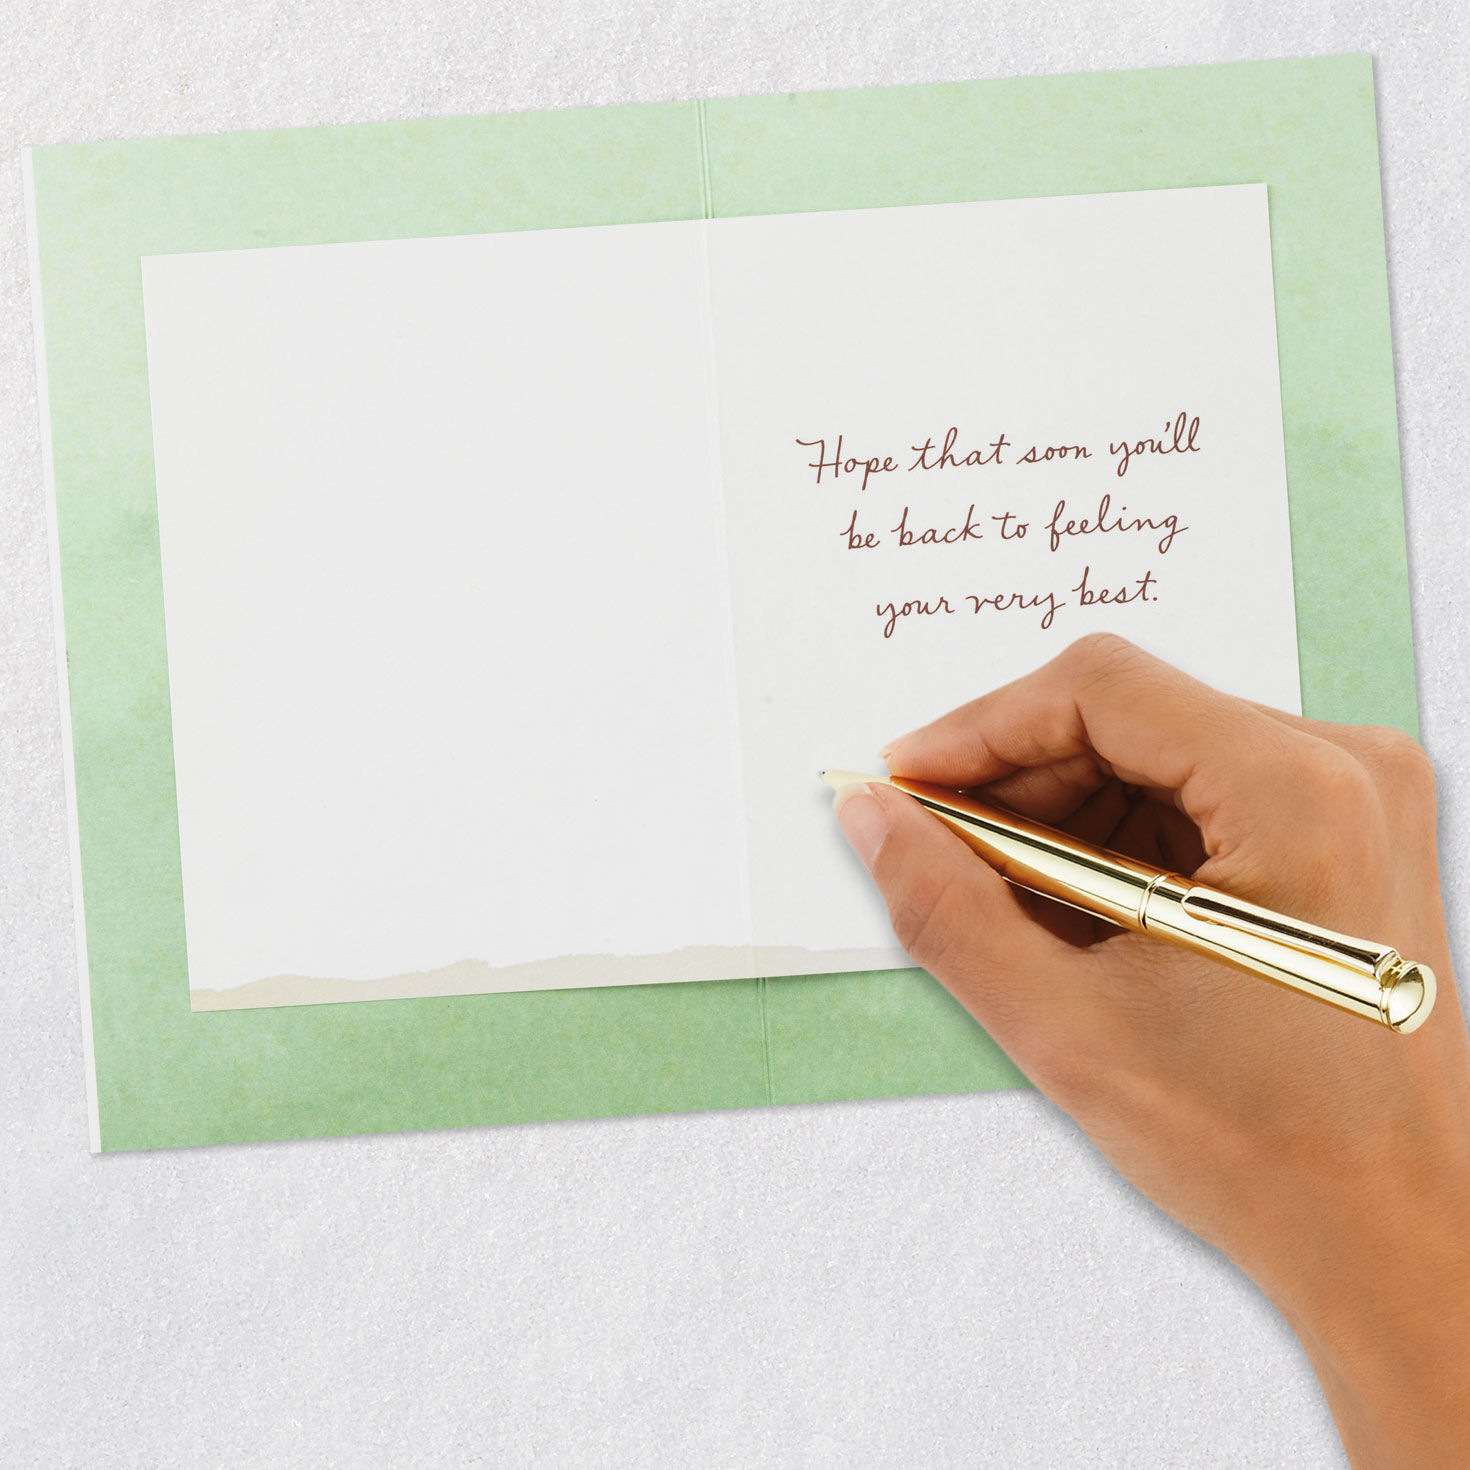 Hope that soon you'll
be back to feeling
your very best.